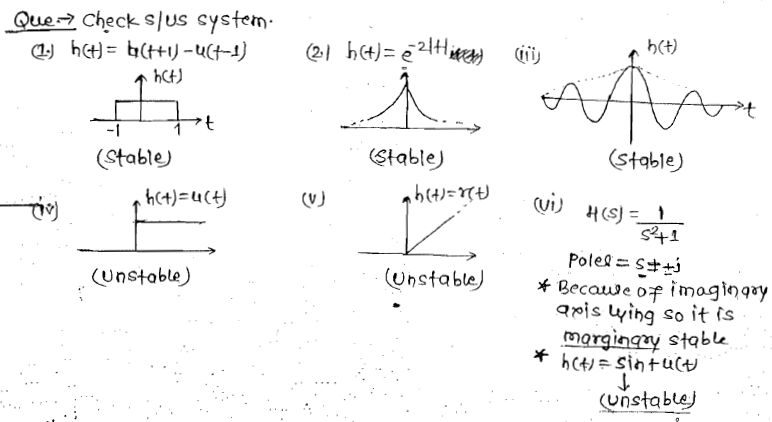 Que→ Check s/us system.
(1.) h(t) = u(t+1) - u(t-1)
h(t)
-1 1 t
(stable)
(2.) h(t) = e^-2|t|
(stable)
(iii) h(t)
t
(stable)
(iv) h(t)=u(t)
(unstable)
(v) h(t)=r(t)
(unstable)
(vi) H(s) = 1
s²+1
Poles = s ± +j
* Because of imaginary
axis lying so it is
marginary stable
* h(t) = sint u(t)
↓
(unstable)